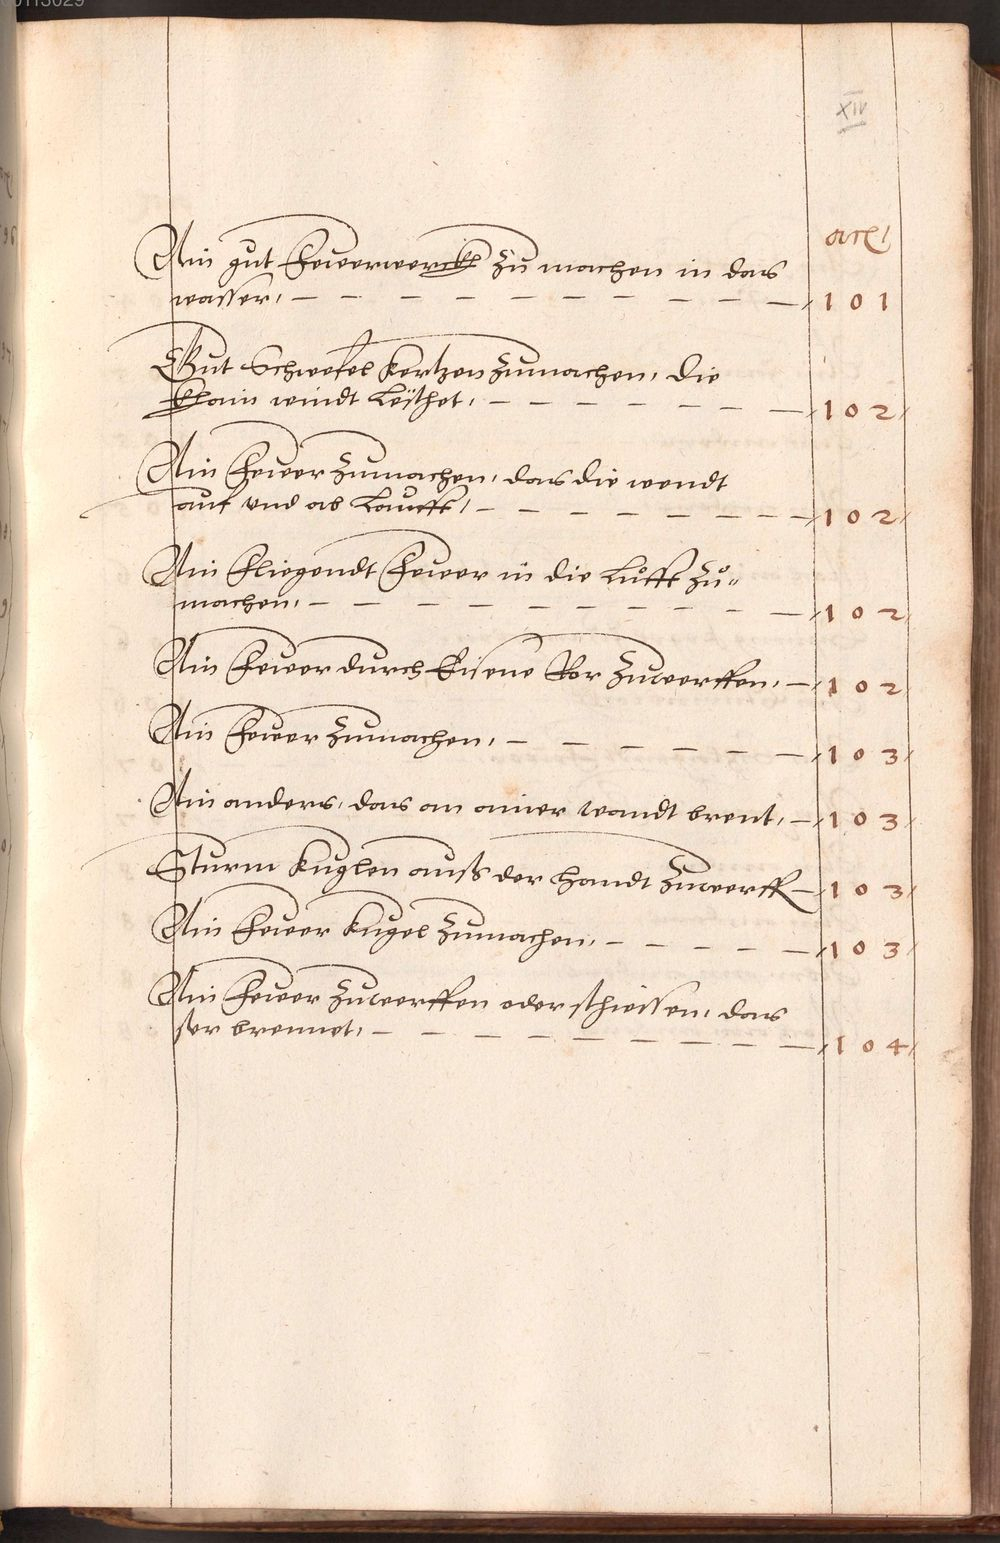 00113029
XIV
Ain gut Fewerwerckh Zu machen in das
wasser, — — — — — — — — — — 101
Gut Schwefel kertzen Zumachen, die
khain windt Leschet, — — — — — — — 102
Ain Fewer Zumachen, das die wendt
auf vnd ab Laufft, — — — — — — — 102
Ain Fliegendt Fewer in die Lufft Zu=
machen, — — — — — — — — — 102
Ain Fewer durch Eisene Ror Zuwerffen, — 102
Ain Fewer Zumachen, — — — — — — 103
Ain anders, das an ainer wandt brent, — 103
Sturm kuglen auss der handt Zuwerff — 103
Ain Fewer kugel Zumachen, — — — — — 103
Ain Fewer Zuwerffen oder schiessen, das
ser brennet, — — — — — — — — — 104